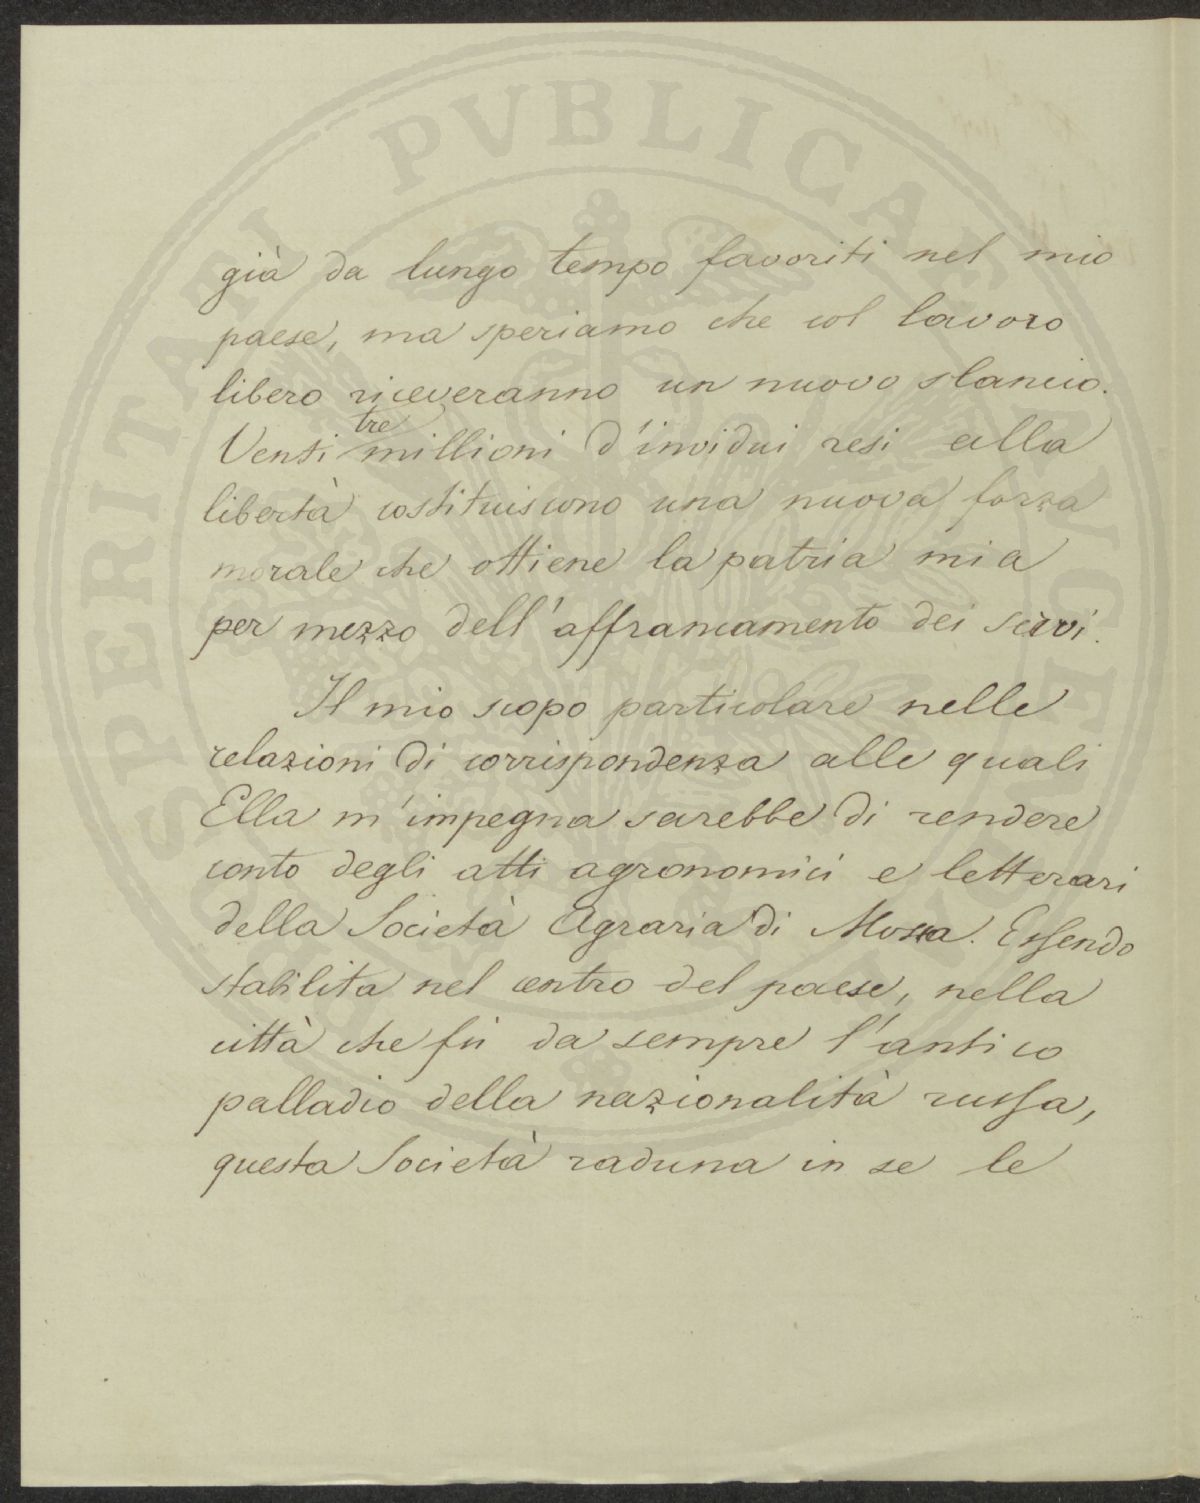 PROSPERITATI PVBLICAE AVGENDAE
già da lungo tempo favoriti nel mio
paese, ma speriamo che col lavoro
libero riceveranno un nuovo slancio.
tre
Venti millioni d'invidui resi alla
libertà costituiscono una nuova forza
morale che ottiene la patria mia
per mezzo dell'affrancamento dei servi.
Il mio scopo particolare nelle
relazioni di corrispondenza alle quali
Ella m'impegna sarebbe di rendere
conto degli atti agronomici e letterari
della Società Agraria di Mosca. Essendo
stabilita nel centro del paese, nella
città che fù da sempre l'antico
palladio della nazionalità russa,
questa Società raduna in se le